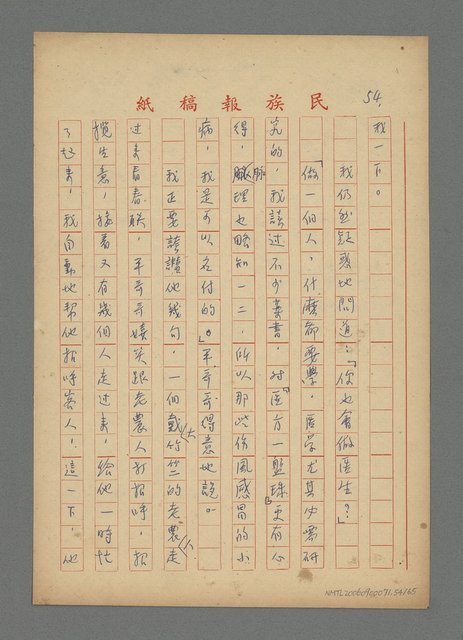 民族報稿紙
54.
我一下。
我仍然疑惑地問道:「你也會做医生?」
「做一個人,什麼都要學。医学尤其必需研
究的,我讀過不少葯書,对「医方一盤珠」更有心
得,脈理也略知一二,所以那些伤風感冒的小
病,我是可以各付的。」平哥哥得意地說。
我正要讚他幾句,一個戴竹笠的老農人走
过来看春联,平哥哥嬉笑跟老農人打招呼,招
攬生意,接着又有幾個人走过来,給他一時忙
了起来,我自動地帮他招呼客人!這一下,他
NMTL20060950071.54/65